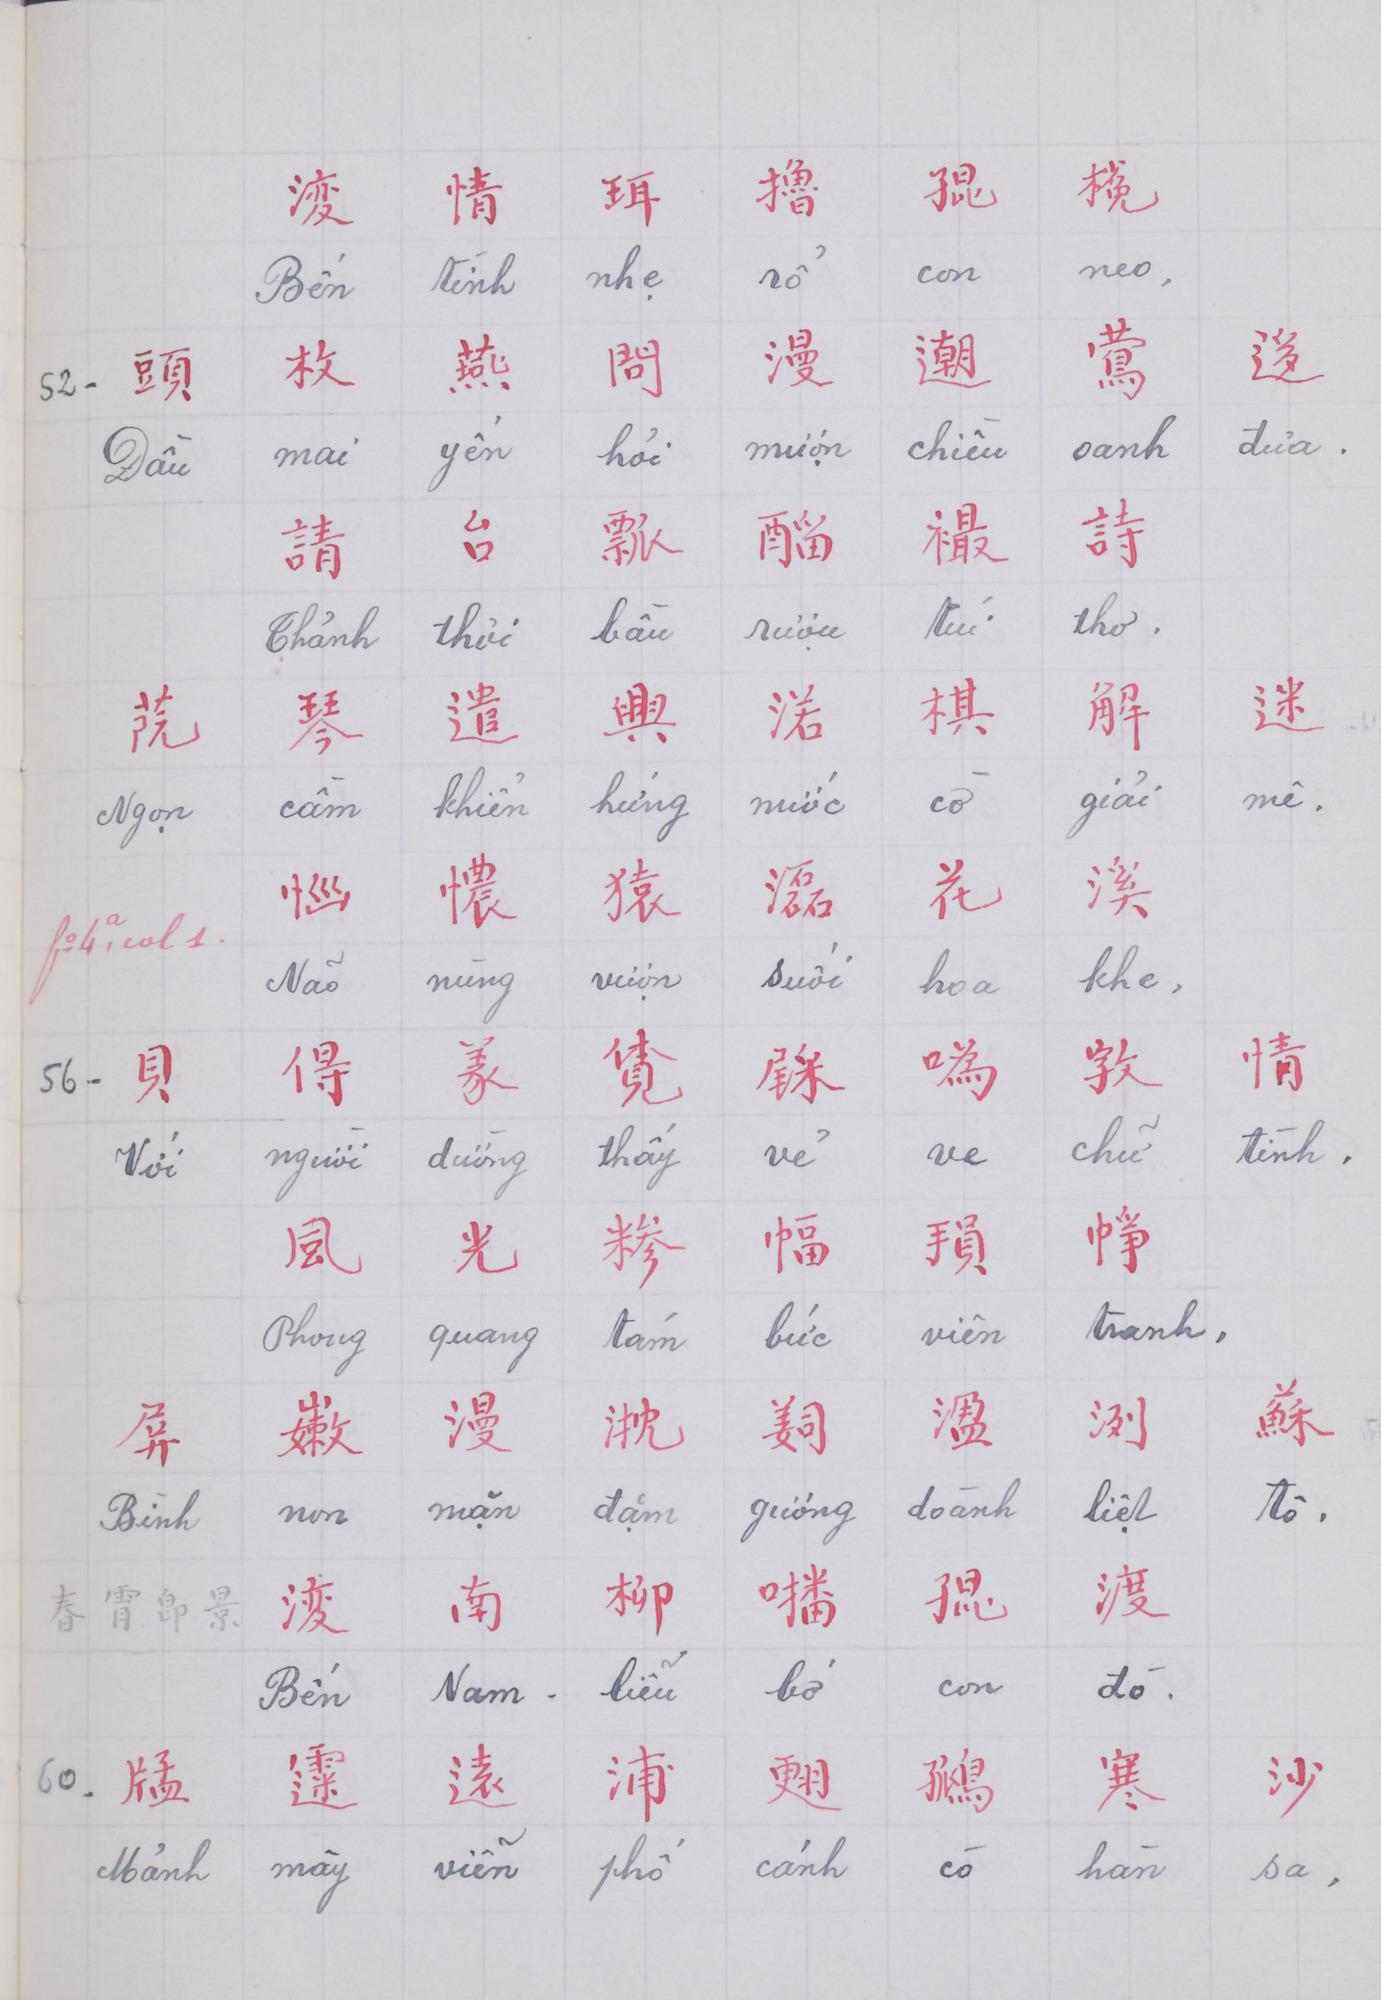 情 珥 擼 猑
Bến tình nhẹ rổ con neo,
52- 頭 枚 燕 問 漫 鶯
Dầu mai yến hỏi mượn chiều oanh đưa.
請 台 瓢 詩
Thảnh thơi bầu rượu túi thơ.
琴 遣 興 渃 棋 解 迷
Ngọn cầm khiển hứng nước cờ giải mê.
fo 4a, col 1.
憹 猿 花 溪
Não nùng vượn suối hoa khe,
56- 貝 㝵 情
Với người dường thấy vẻ ve chữ tình.
風 光 糝 幅 幀
Phong quang tám bức viên tranh,
屏 嫩 漫 洌 蘇
Bình non mặn đạm gương doành liệt tô.
春 霄 即 景
南 柳 噃 渡
Bến Nam-liễu bỏ con đò.
60- 遠 浦 寒 沙
Mảnh mây viễn phố cánh cò hàn sa,